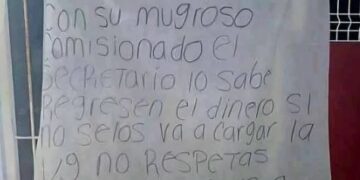 con su mugroso
comisionado el
secretario lo sabe
Regresen el dinero si
no selos va a cargar la
no Respetas